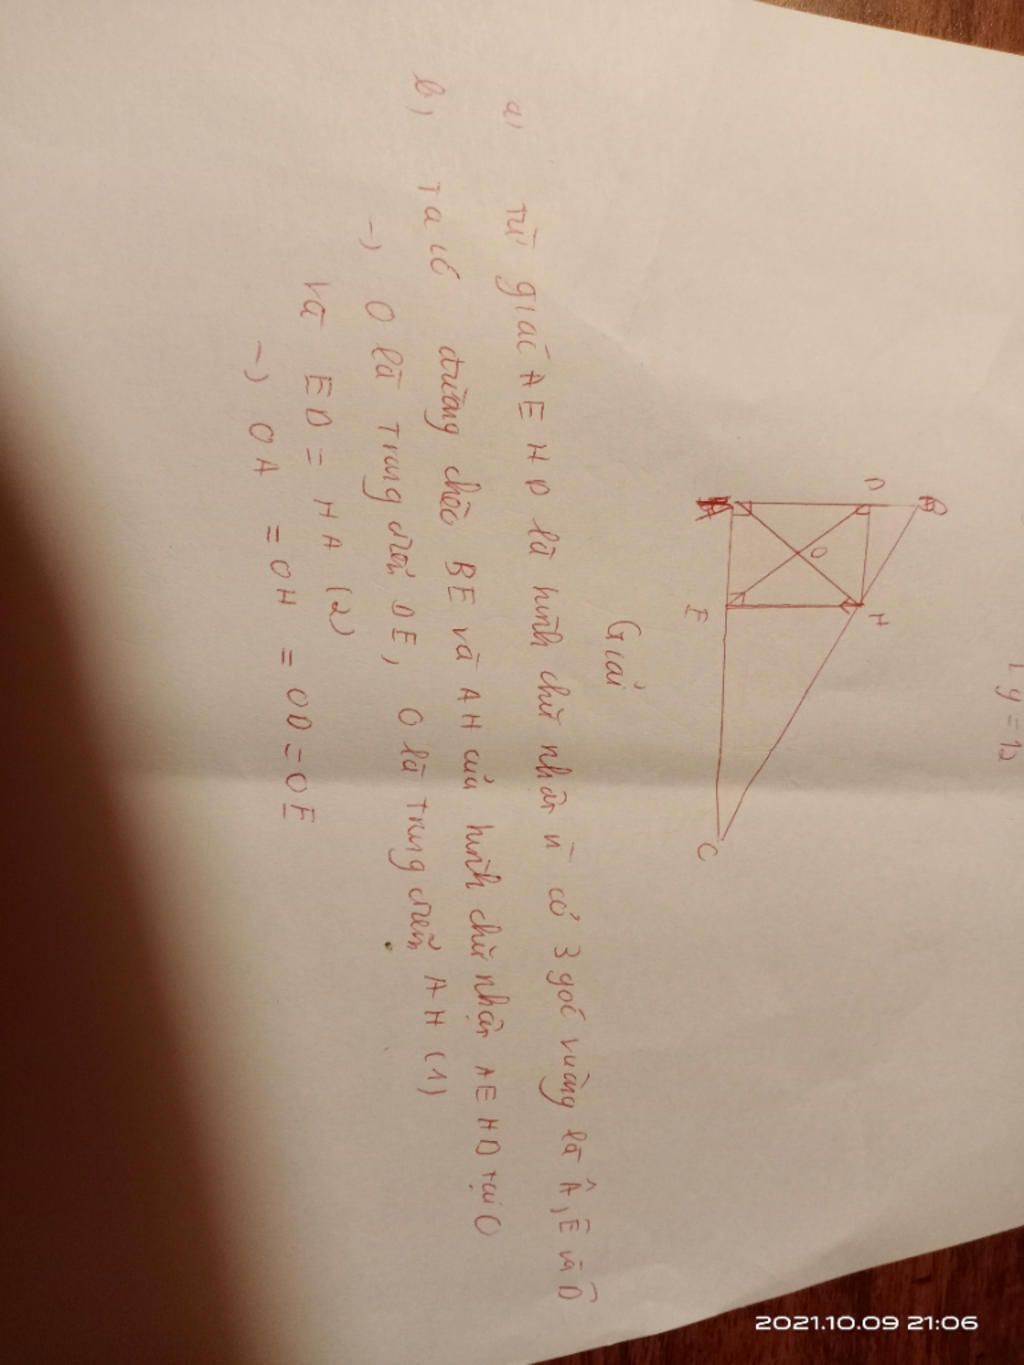 y = 12
B
D
H
O
A
E
C
Giải
a, Tứ giác AEHD là hình chữ nhật vì có 3 góc vuông là Â, Ê và D̂
b, Ta có đường chéo BE và AH của hình chữ nhật AEHD tại O
-) O là trung điểm DE, O là trung điểm AH (1)
và ED = HA (2)
-) OA = OH = OD = OE
2021.10.09 21:06